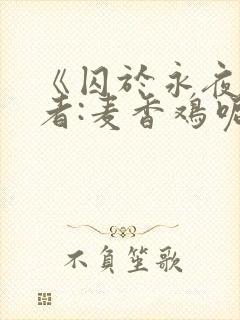 《囚於永夜
者:麦香鸡呢
不負笙歌